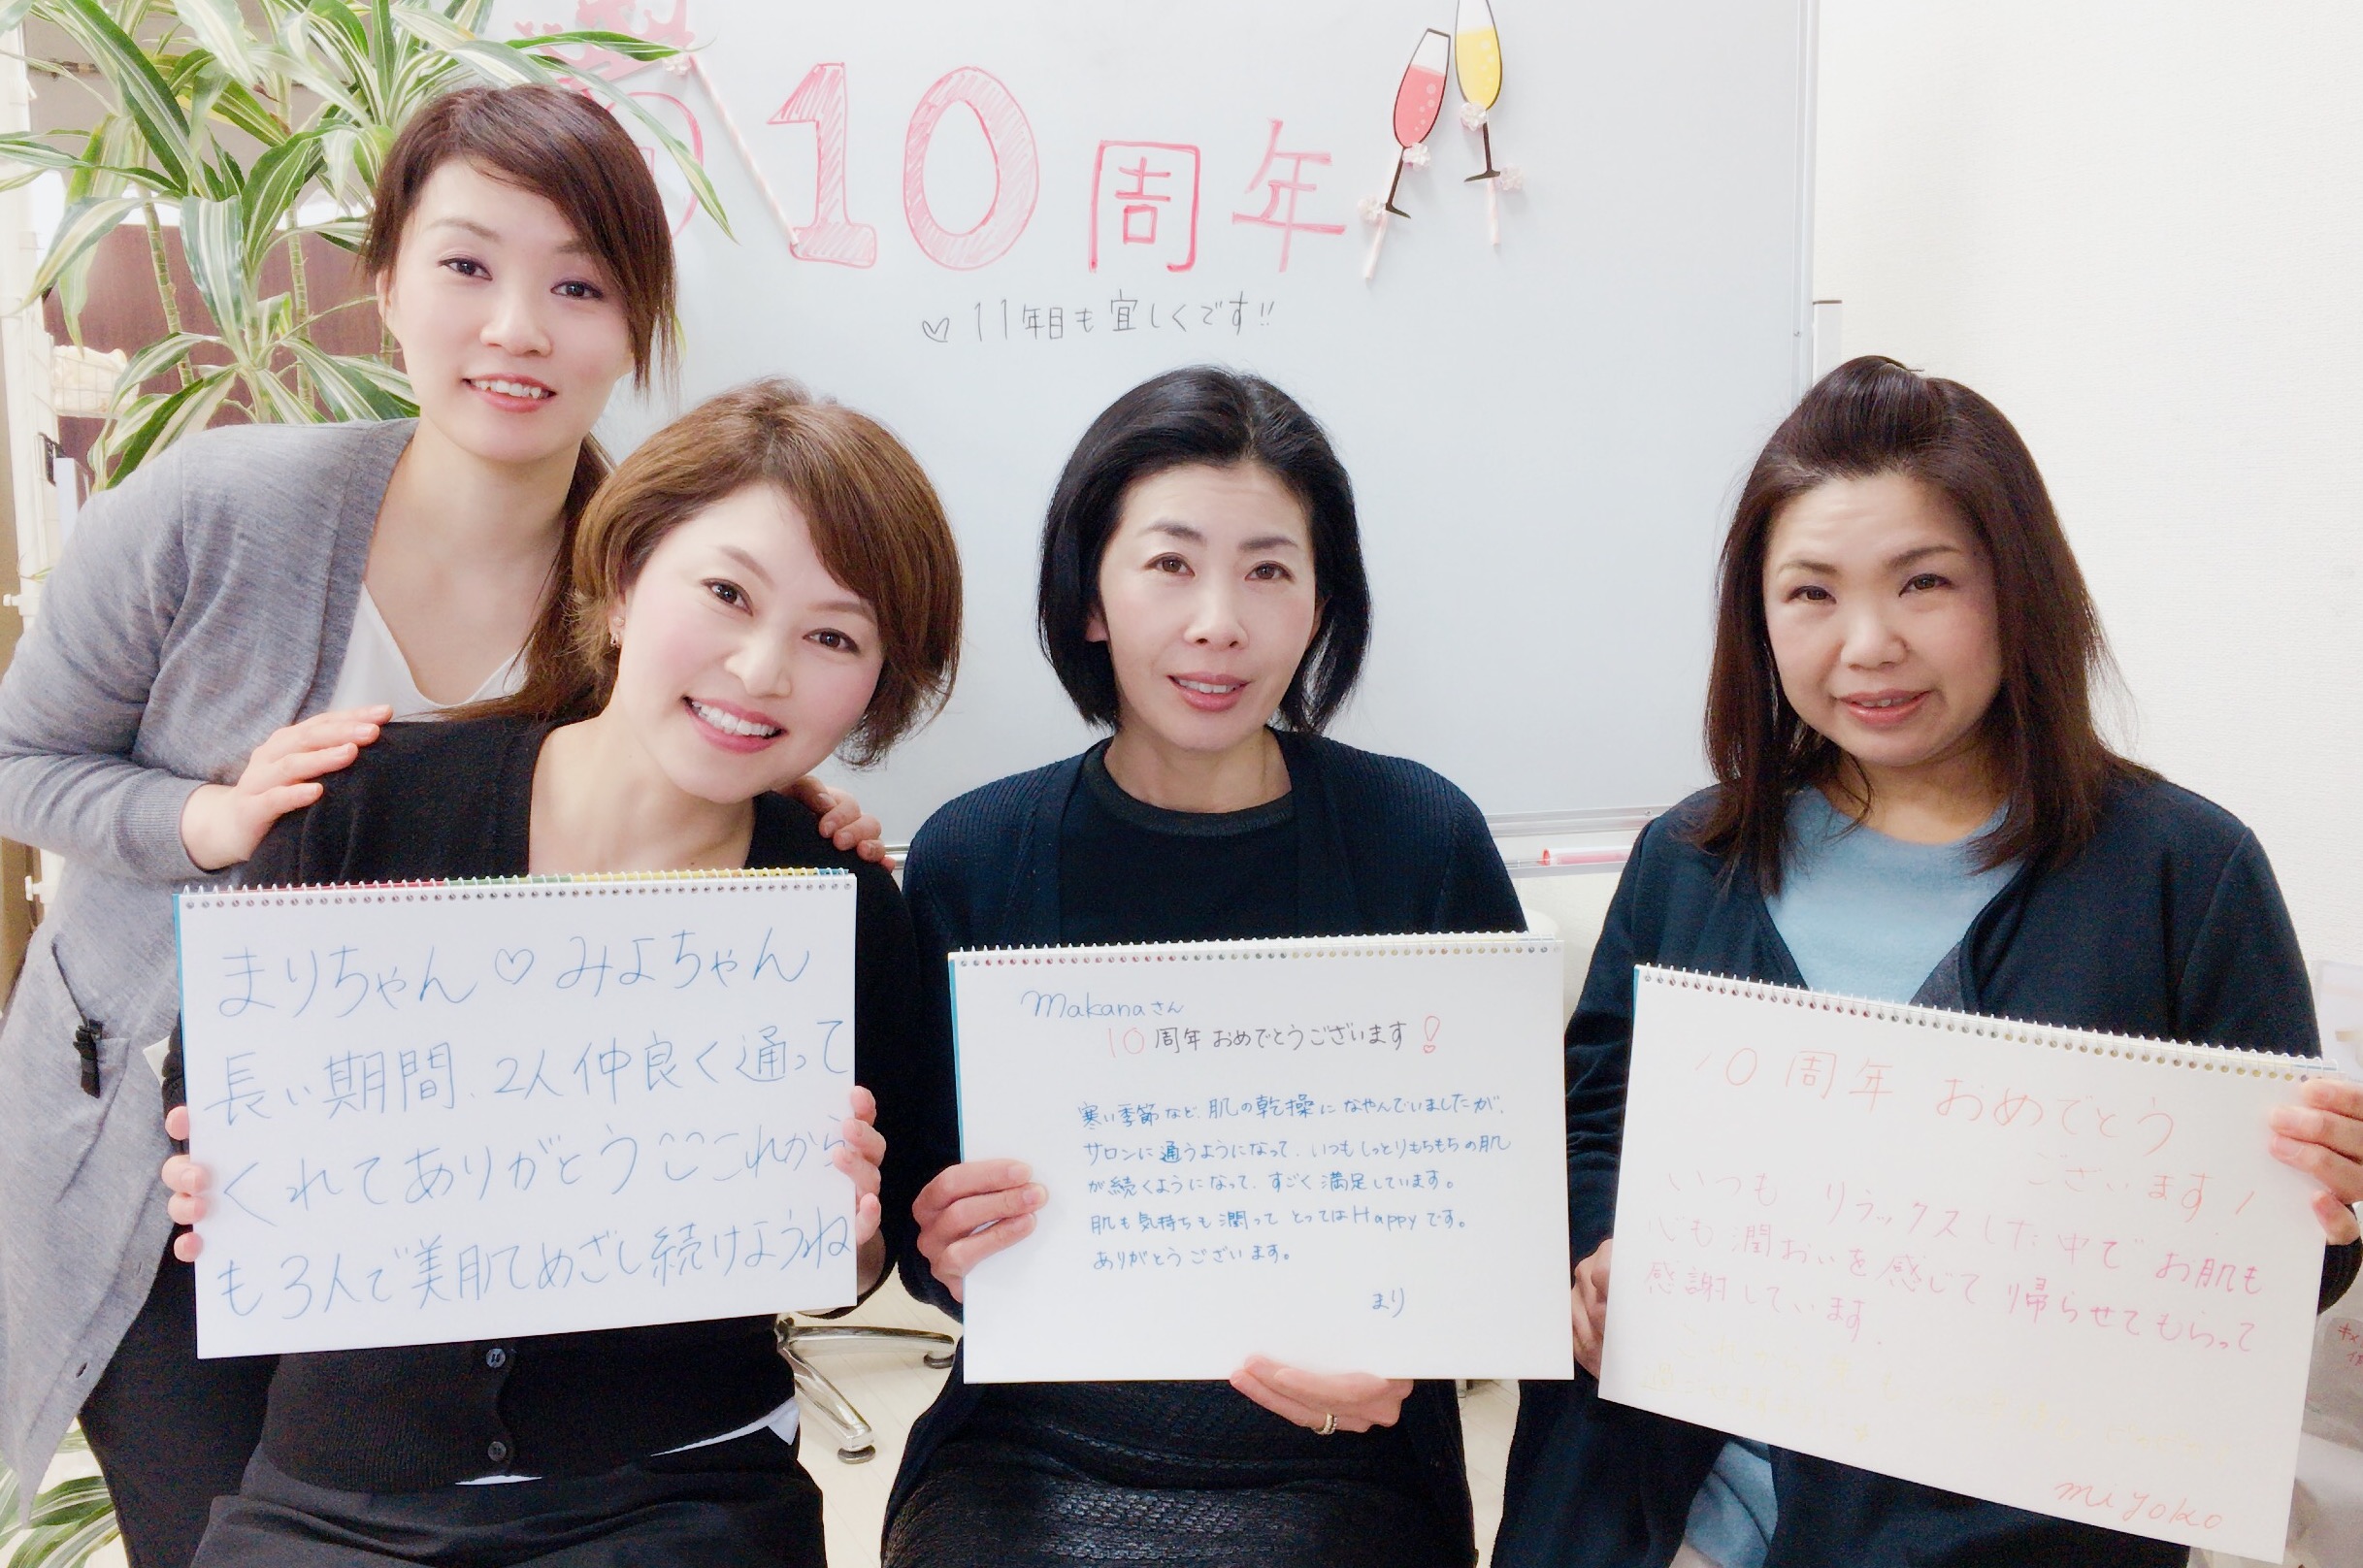 10周年
♡11年目も宜しくです!!
まりちゃん♡みよちゃん
長い期間、2人仲良く通って
くれてありがとう これから
も3人で美肌てめざし続けようね
makanaさん
10周年おめでとうございます!
寒い季節など、肌の乾操になやんでいましたが、
サロンに通うようになって、いつもしっとりもちもちの肌
が続くようになって、すごく満足しています。
肌も気持ちも潤って とってはHappyです。
ありがとうございます。
まり
10周年 おめでとう
ございます!
いつも リラックスした中で お肌も
心も潤おいを感じて帰らせてもらって
感謝しています.
miyoko